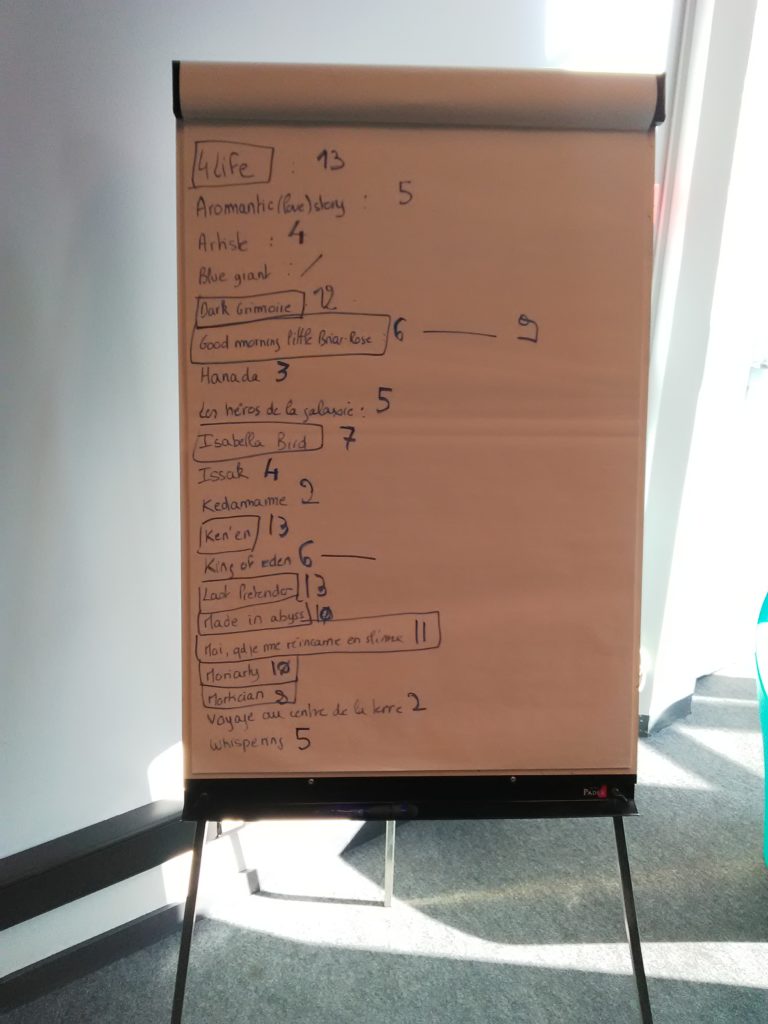 4 Life : 13
Aromantic (love) story : 5
Artiste : 4
Blue giant : /
Dark Grimoire : 12
Good morning little Briar-Rose : 6 — 9
Hanada 3
Les héros de la galaxie : 5
Isabella Bird 7
Issak 4
Kedamame 2
Ken'en 13
King of eden 6 —
Last Pretender 13
Made in abyss 10
Moi, qd je me réincarne en slime 11
Moriarty 10
Mortician
Voyage au centre de la terre 2
Whispering 5